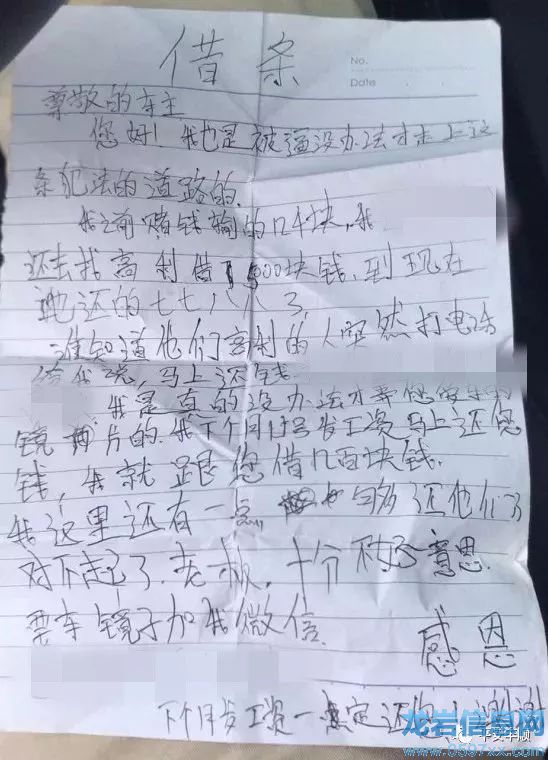 借条
No.
Date
尊敬的车主
您好！我也是被逼没办法才走上这
条犯法的道路的.
我之前赌钱输的几千块,我
还去找高利借1500块钱,到现在
也还的七七八八了,
谁知道他们高利的人突然打电话
给我说,马上还钱.
我是真的没办法才弄您的车子
镜片的.我下个月15号发工资马上还您
钱,我就跟您借几百块钱.
我这里还有一点 够还他们了
对不起了.老板.十分不好意思.
要车镜子加我微信.
感恩
下个月发工资一定还你！谢谢
龙岩信息网
www.0597xx.com